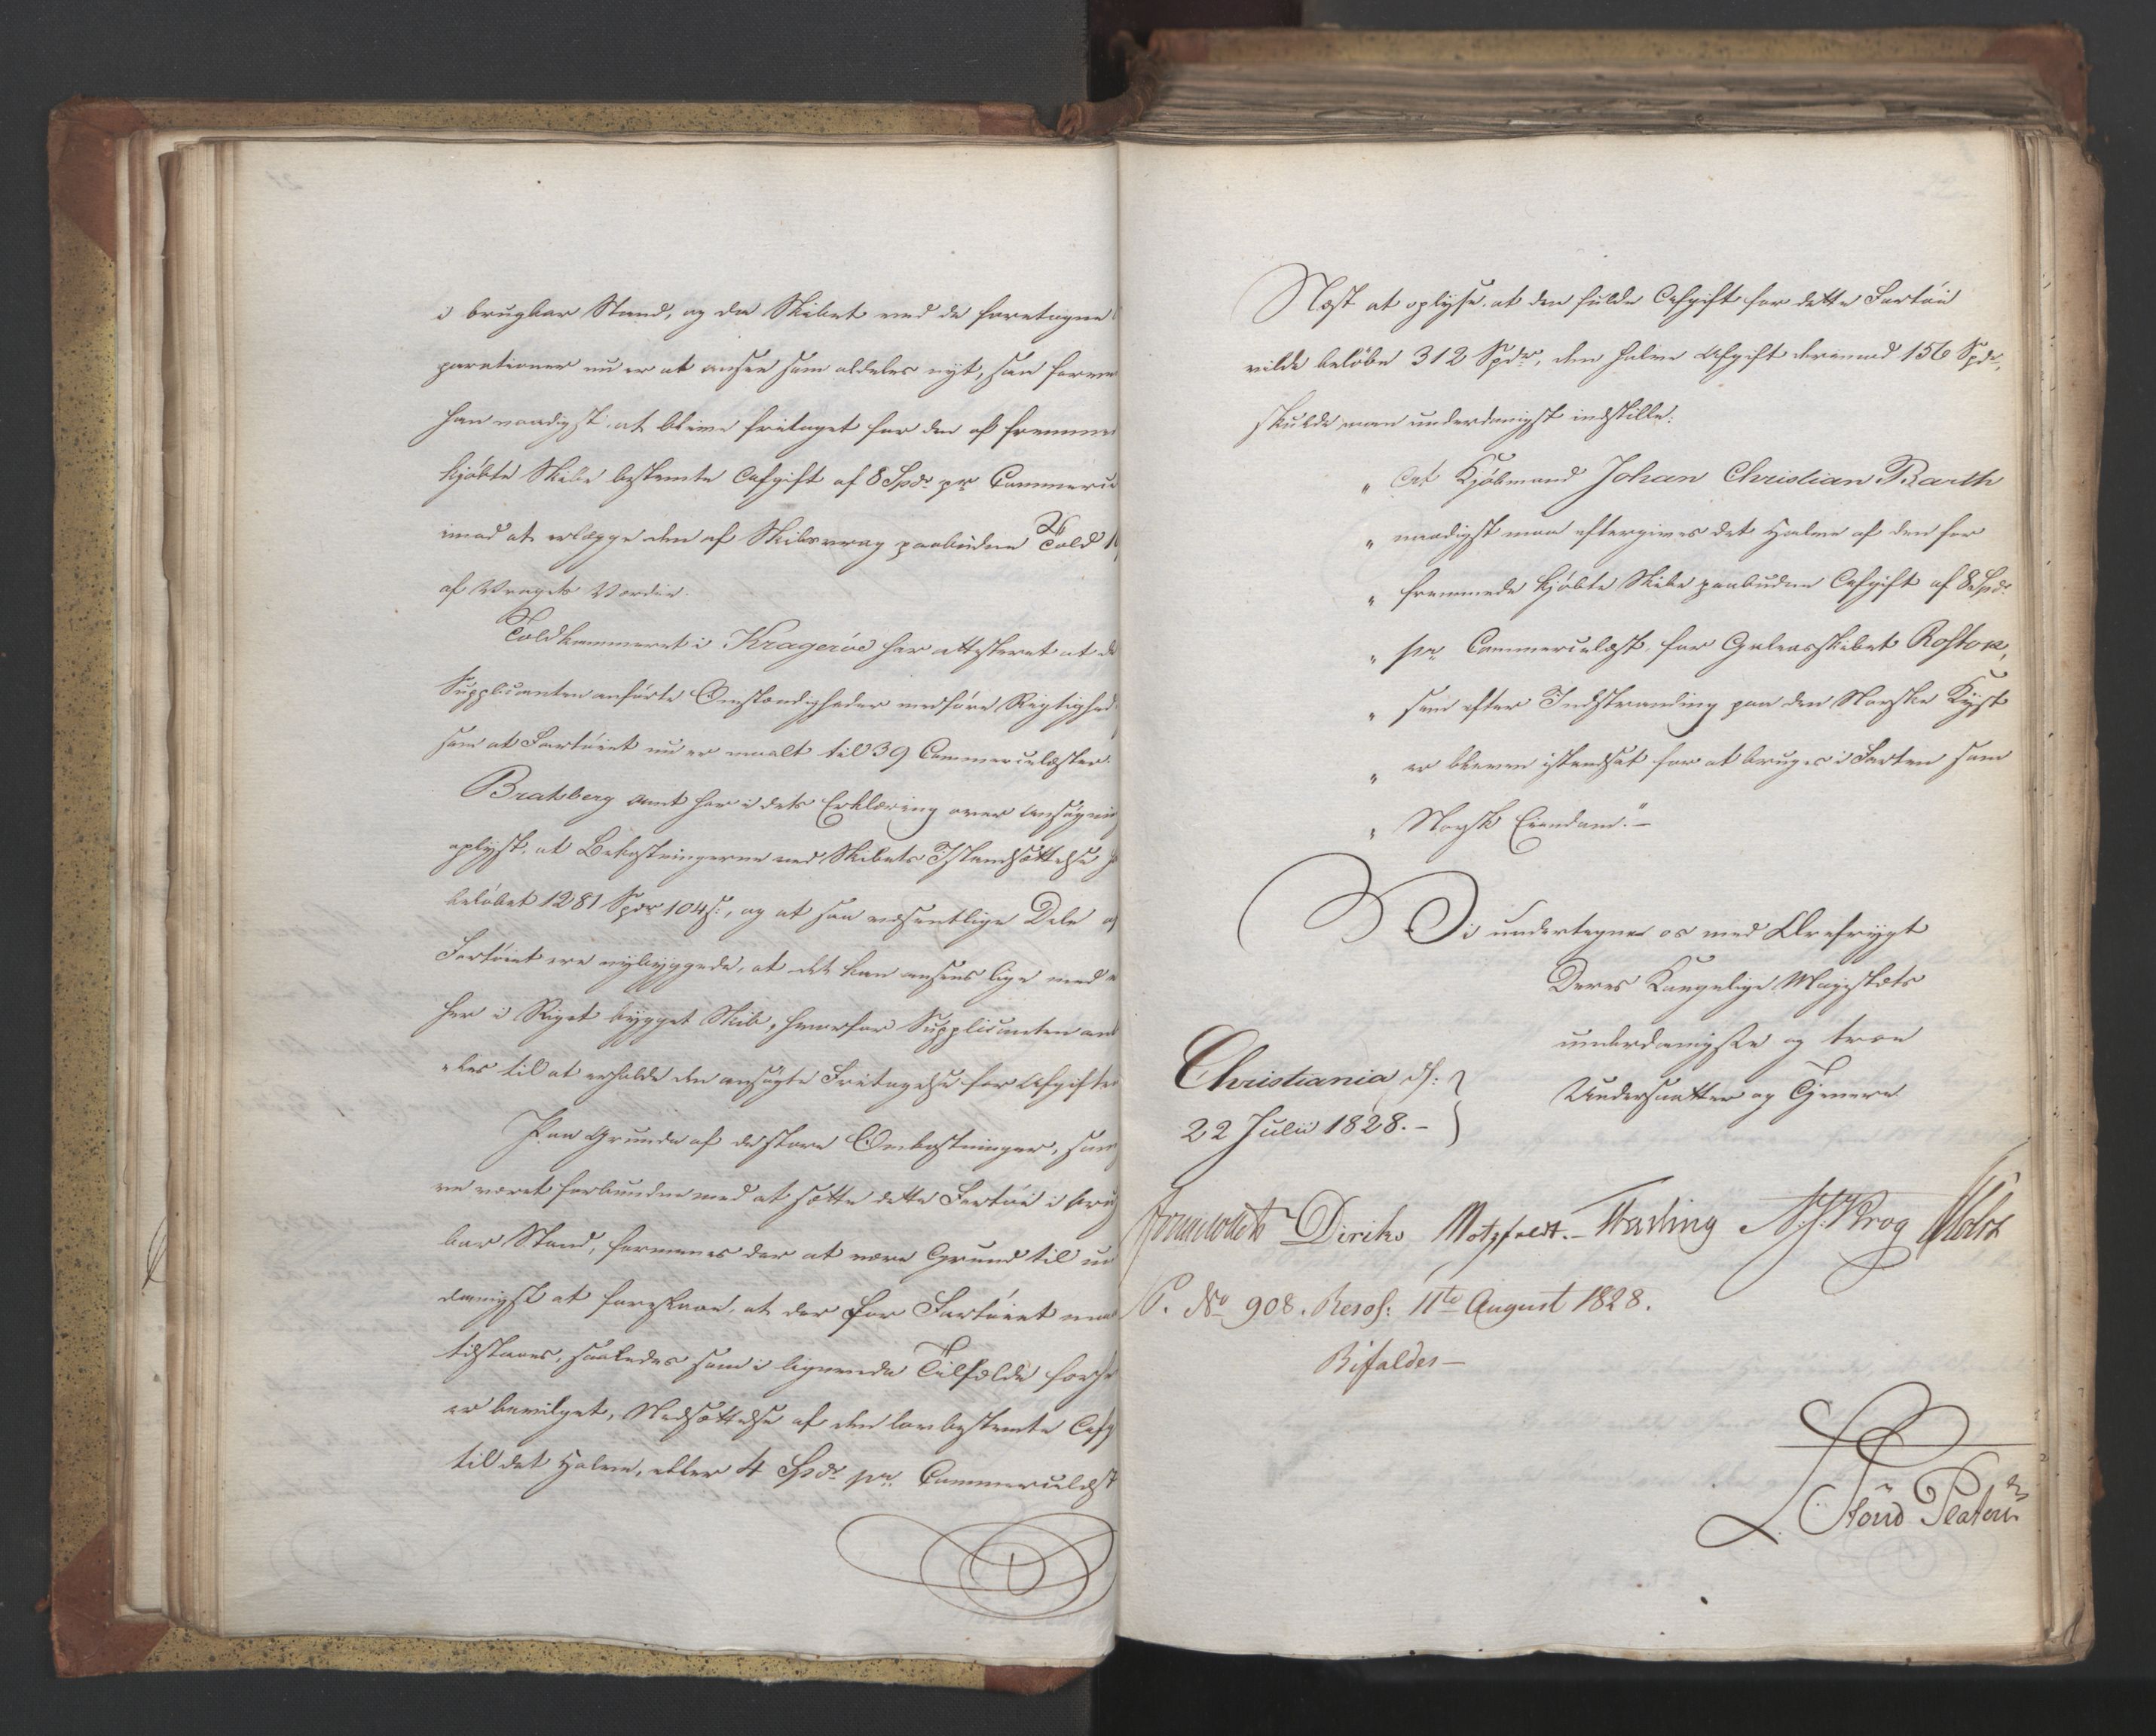 i brugbar Stand, og da Skibet ved de foretagne
parationer nu er at ansee som aldeles nyt, saa forme
han naadigst at blive fritaget for den af fremmede
kjøbte Skibe bestemte Afgift af 8 Spdr pr Commerce
imod at erlægge den af Skibsvrag paabudne Told
af Vragets Værdie.
Toldkammeret i Kragerøe har attesteret at de
Supplicanten anførte Omstændigheder medføre Rigtighed
som at Fartøiet nu er maalt til 39 Commercelæster.
Bratsberg Amt har i dets Erklæring over Ansøgnin
oplyst, at Bekostningerne ved Skibets Istandsættelse
beløbet 1281 Spdr 104 s:, og at saa væsentlige Dele af
Fartøiet ere nybyggede, at det kan ansees lige med
her i Riget bygget Skib, hvorfor Supplicanten anb
"les til at erholde den ansøgte Fritagelse for Afgiften
Paa Grund af de store Omkostninger, som
ve været forbundne med at sætte dette Fartøi i brug
bar Stand, formenes der at være Grund til un
danigst at foreslaae, at der for Fartøiet maa
tilstaaes, saaledes som i lignende Tilfælde forhe
er bevilget, Nedsættelse af den lovbestemte Afg
til det Halve, eller 4 Spdr pr Commercelæst
Næst at oplyse, at den fulde Afgift for dette Fartøi
vilde beløbe 312 Spdr, den halve Afgift derimod 156 Spdr,
skulde man underdanigst indstille:
" At Kjøbmand Johan Christian Barth
" naadigst maa eftergives det Halve af den for
" fremmede kjøbte Skibe paabudne Afgift af 8 Spdr
" pr Commercelæst, for Galeasskibet Rostok,
" som efter Indstranding paa den Norske Kyst
" er bleven istandsat for at bruges i Farten som
" Norsk Eiendom." -
Vi undertegne os med Ærefrygt
Deres Kongelige Majestæts
underdanigste og troe
Undersaatter og Tjenere
Christiania d:
22 Julii 1828. -
Diriks Motzfeldt. - Fasting N. J. Krog Holst
P. No 908. Resol: 11te August 1828.
Bifaldes -